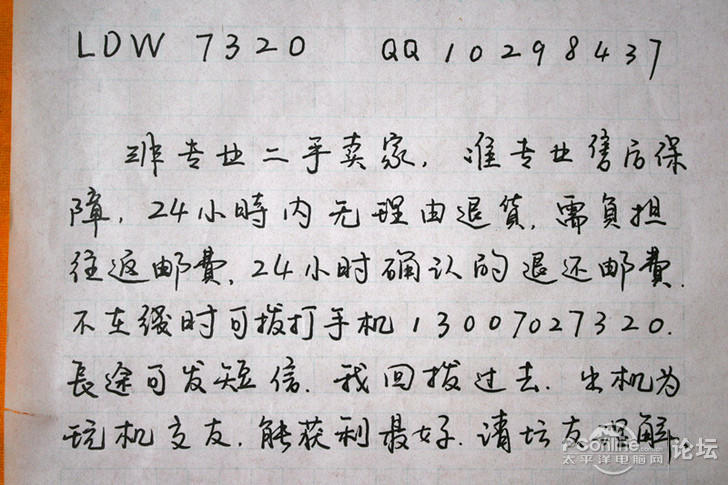 LDW 7320 QQ 10298437
非专业二手卖家，准专业售后保
障，24小時内无理由退貨，需負担
往返邮費，24小时确认的退还邮費。
不在线时可拨打手机13007027320.
長途可发短信．我回拨过去．出机为
玩机交友．能获利最好．请坛友理解．
PConline 论坛
太平洋电脑网